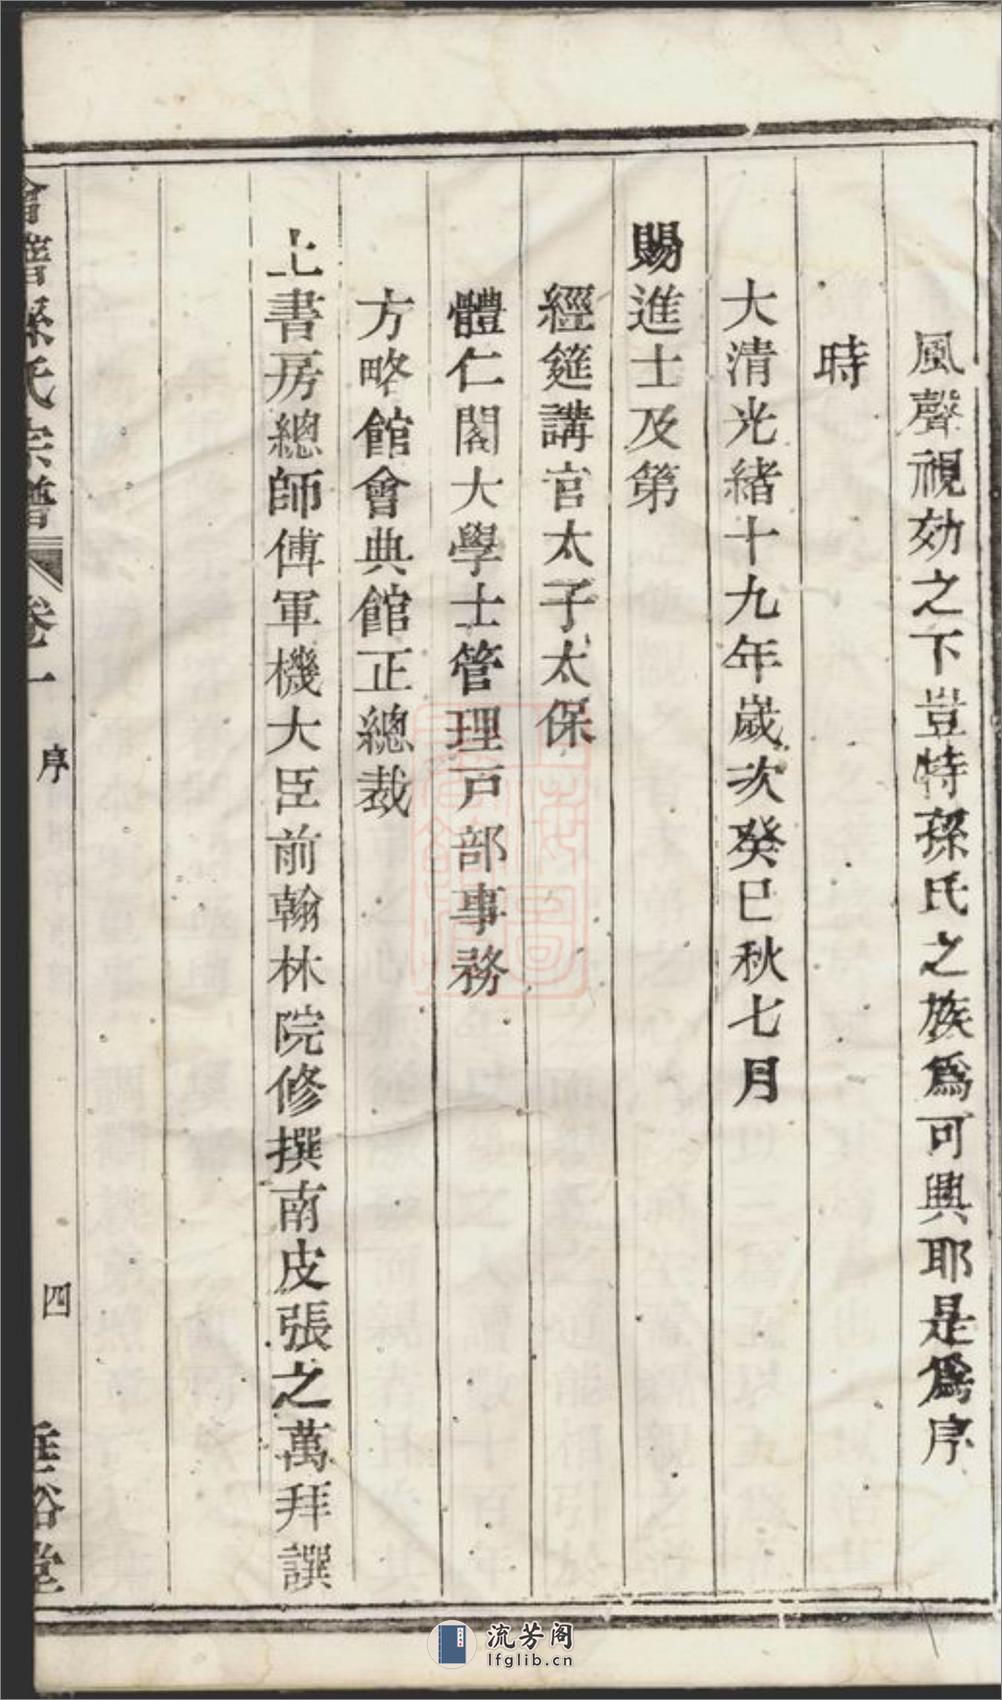 風聲視効之下豈特孫氏之族爲可興耶是爲序
時
大清光緒十九年歲次癸巳秋七月
賜進士及第
經筵講官太子太保
體仁閣大學士管理戸部事務
方略館會典館正總裁
上書房總師傅軍機大臣前翰林院修撰南皮張之萬拜譔
孫氏宗譜 卷一 序 四 垂裕堂
流芳阁
lfglib.cn